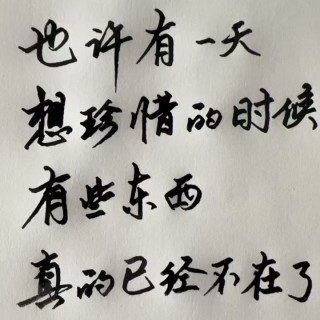 也许有一天
想珍惜的时候
有些东西
真的已经不在了